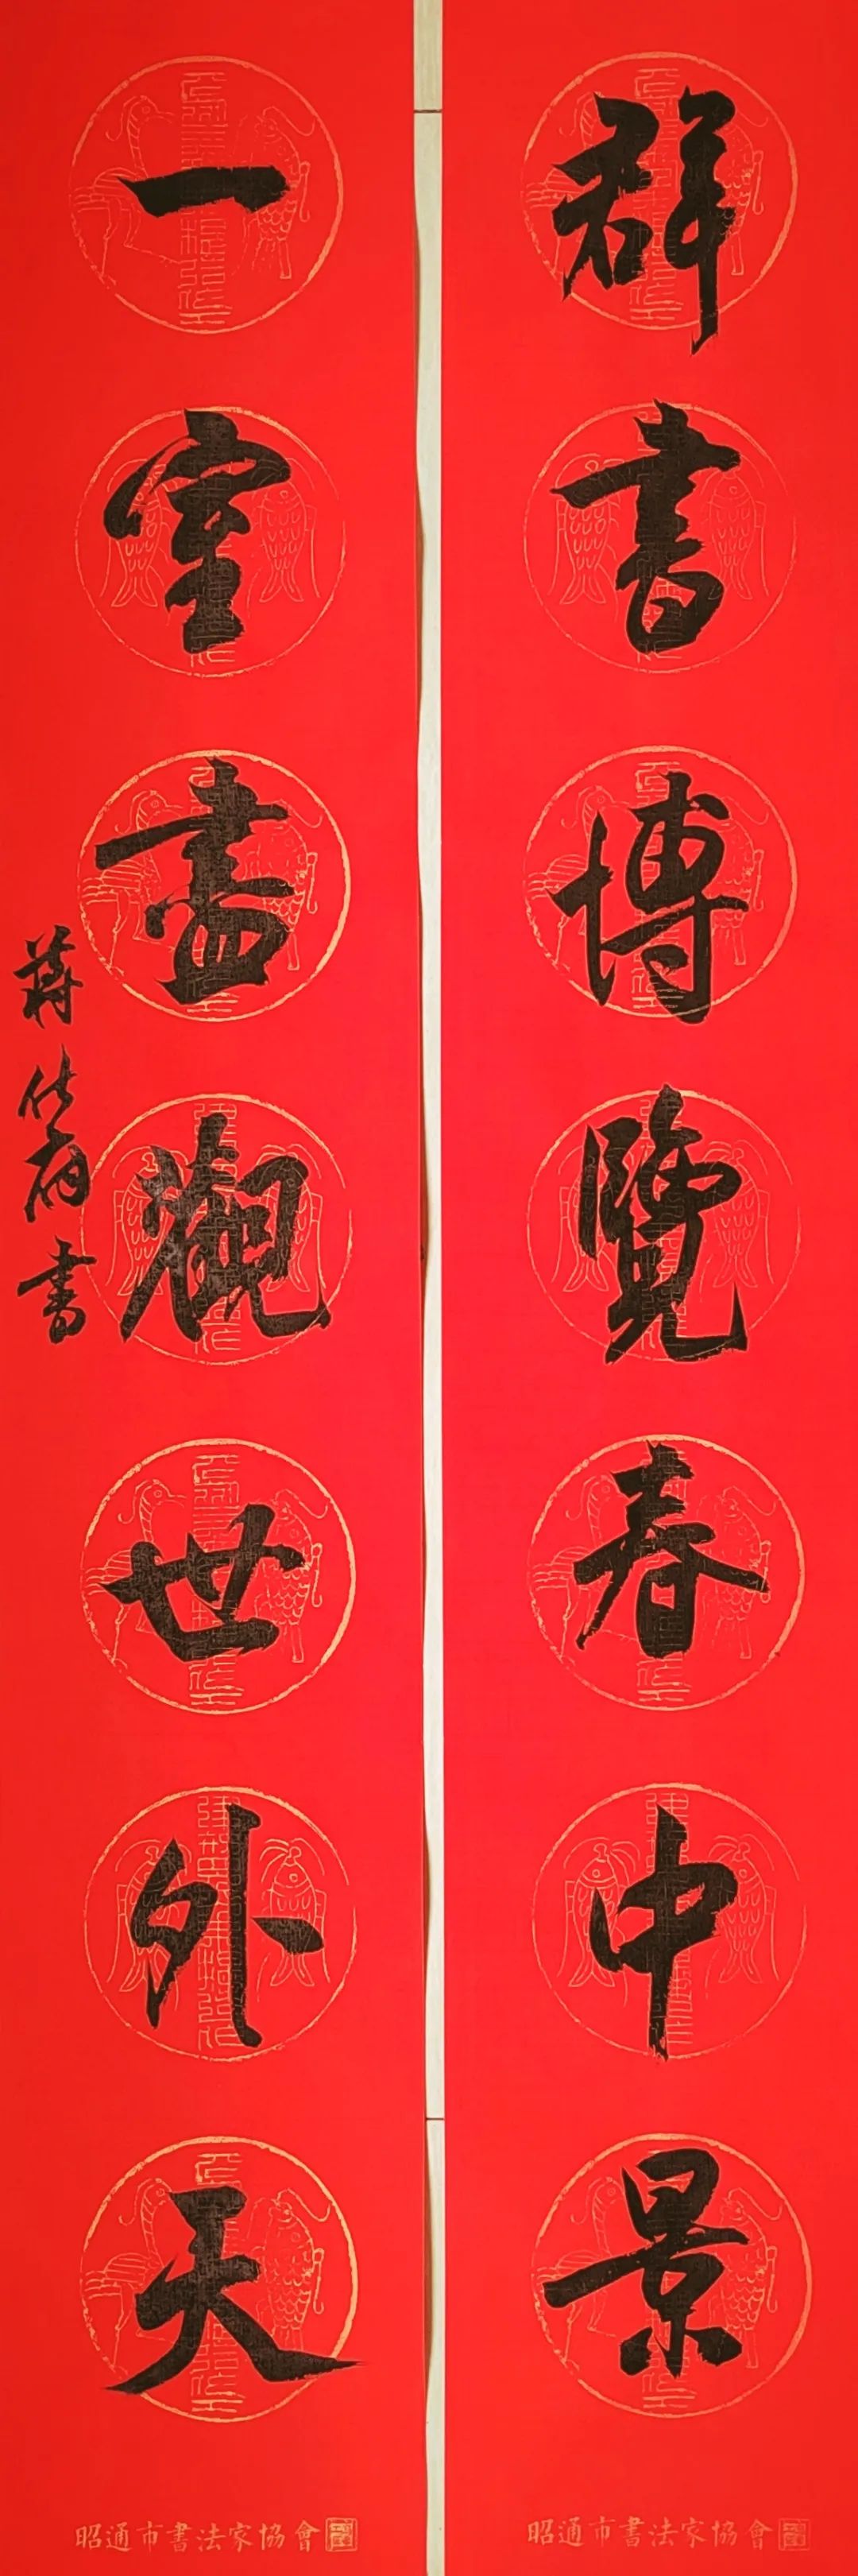 群書博覽春中景
一室盡觀世外天
蔣 書
昭通市書法家協會
昭通市書法家協會